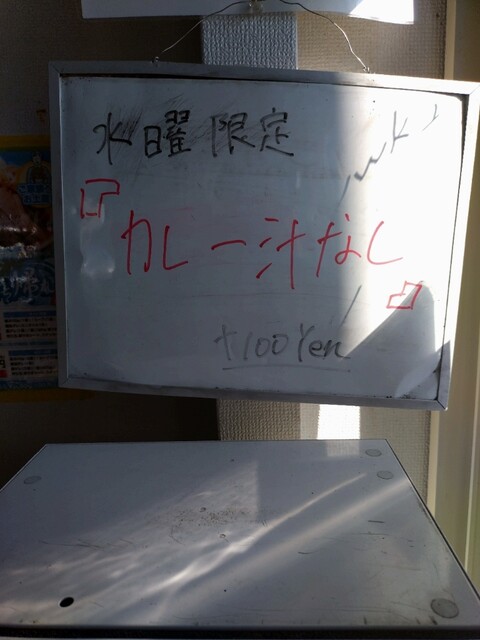 水曜限定
『カレー汁なし』
+100Yen